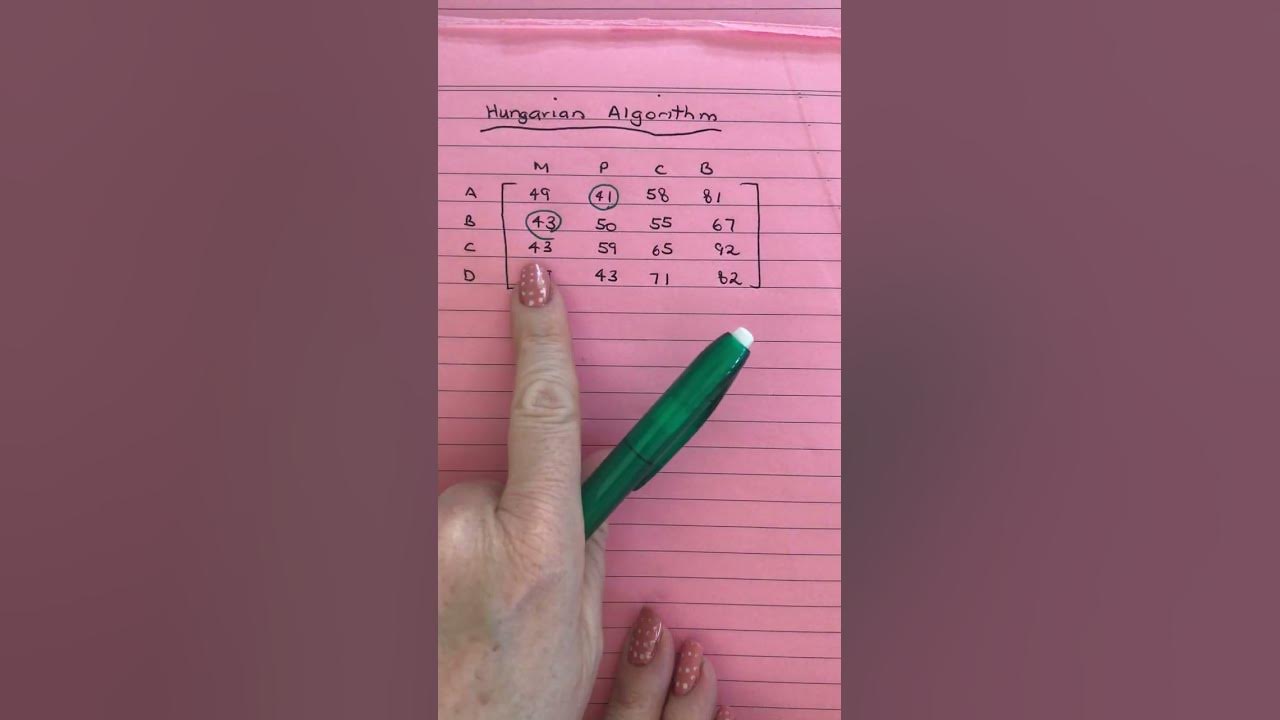 Hungarian Algorithm
M P C B
A 49 41 58 81
B 43 50 55 67
C 43 59 65 92
D 43 71 82